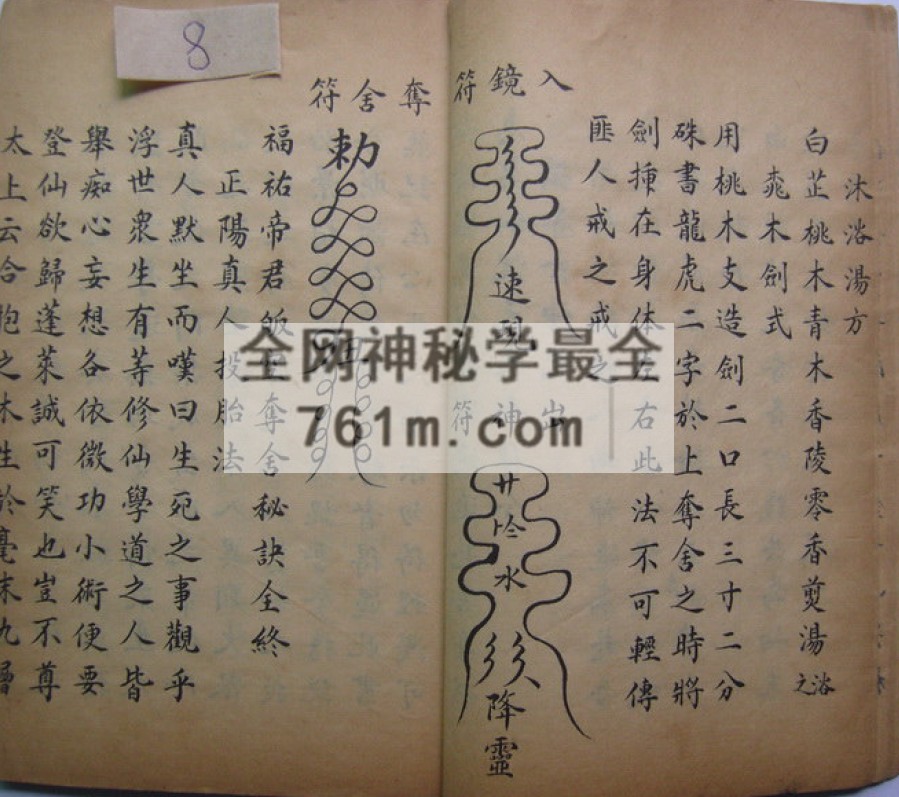 沐浴湯方
白芷桃木青木香陵零香煎湯浴之
桃木劍式
用桃木支造劍二口長三寸二分
硃書龍虎二字於上奪舍之時將
劍插在身体左右此法不可輕傳
匪人戒之戒之
入鏡符
速現神
出
符
水
降靈
奪舍符
勅
福祐帝君飯奪舍秘訣全終
正陽真人投胎法
真人默坐而嘆曰生死之事觀乎
浮世衆生有等修仙學道之人皆
舉痴心妄想各依微功小術便要
登仙欲歸蓬萊誠可笑也豈不尊
太上云合抱之木生於毫末九層
8
全网神秘学最全
761m.com